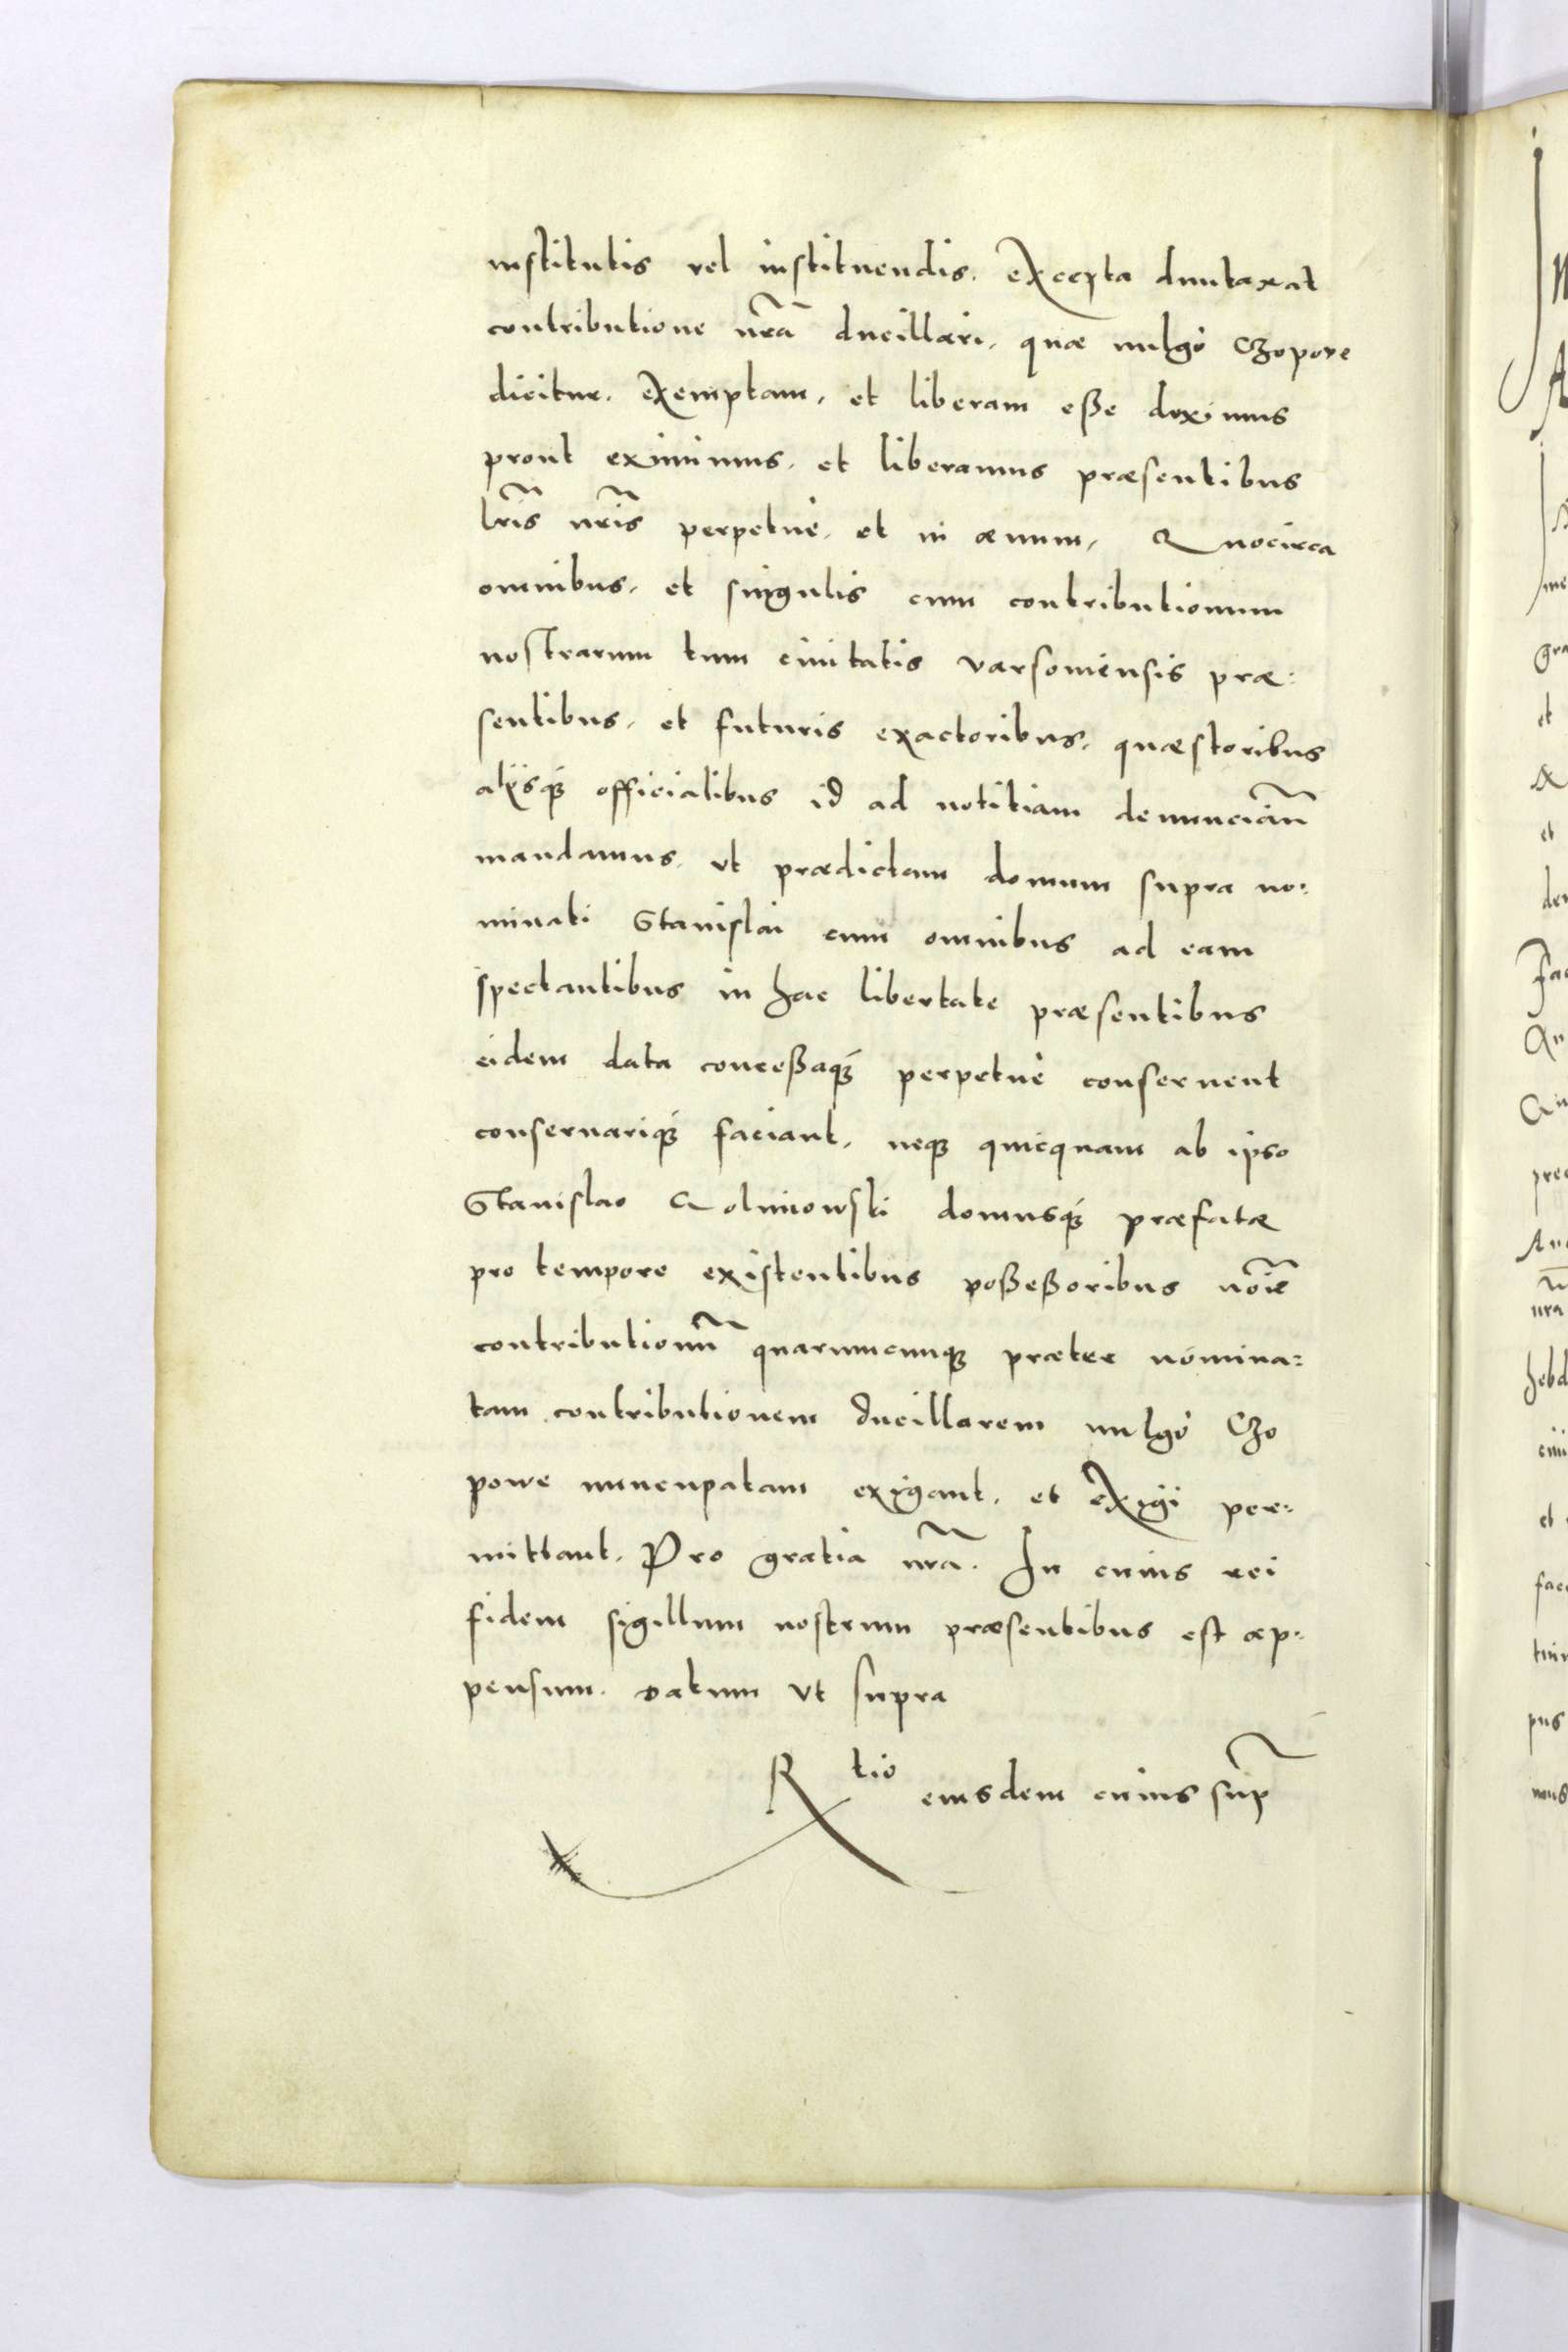 institutis vel instituendis. excepta duntaxat
contributione nr̃a ducillari, quæ uulgo Czopove
dicitur. exemptam, et liberam eße duximus
prout eximimus, et liberamus præsentibus
lr̃is nr̃is perpetuè, et in æuum, Quocirca
omnibus, et singulis cum contributionum
nostrarum tum ciuitatis varsouiensis præ:
sentibus, et futuris exactoribus, quæstoribus
alijsq́ꝫ officialibus id ad notitiam denunciañ
mandamus. vt prædictam domum supra no:
minati Stanislai cum omnibus ad eam
spectantibus in hac libertate præsentibus
eidem data conceßaq́ꝫ perpetuè conseruent
conseruariq́ꝫ faciant, neqꝫ quicquam ab ipso
Stanislao Qolmowski domusq́ꝫ præfatæ
pro tempore existentibus poßeßoribus noĩe
contributionũ quarumcunqꝫ præter nomina:
tam contributionem ducillarem uulgo Czo
powe nuncupatam exigant, et exigi per:
mittant. Pro gratia nr̃a. In cuius rei
fidem sigillum nostrum præsentibus est ap:
pensum. Datum vt supra
R tio eiusdem cuius sup̃